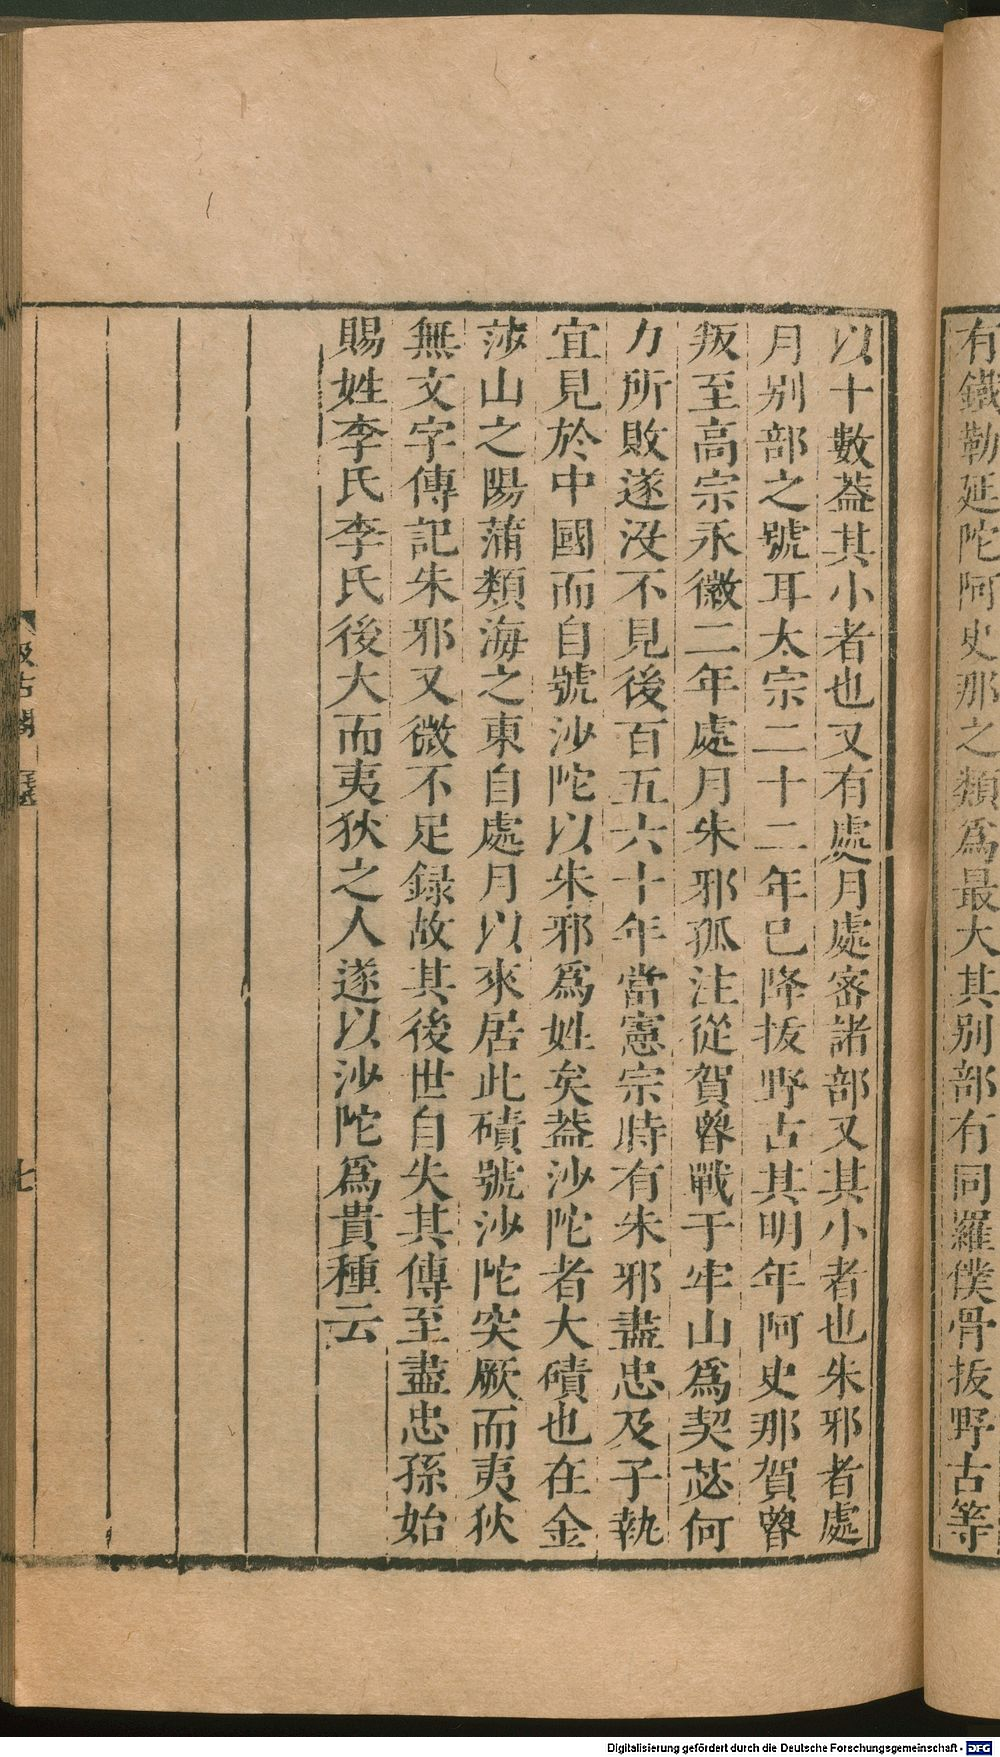 有鐵勒延陀阿史那之類爲最大其别部有同羅僕骨拔野古等
以十數葢其小者也又有處月處審諸部又其小者也朱邪者處
月别部之號耳太宗二十二年已降拔野古其明年阿史那賀魯
叛至高宗永徽二年處月朱邪孤注從賀魯戰于牢山爲契苾何
力所敗遂没不見後百五六十年當憲宗時有朱邪盡忠及子執
宜見於中國而自號沙陀以朱邪爲姓矣葢沙陀者大磧也在金
莎山之陽蒲類海之東自處月以來居此磧號沙陀突厥而夷狄
無文字傳記朱邪又微不足録故其後世自失其傳至盡忠孫始
賜姓李氏李氏後大而夷狄之人遂以沙陀爲貴種云
汲古閣
七
Digitalisierung gefördert durch die Deutsche Forschungsgemeinschaft - DFG